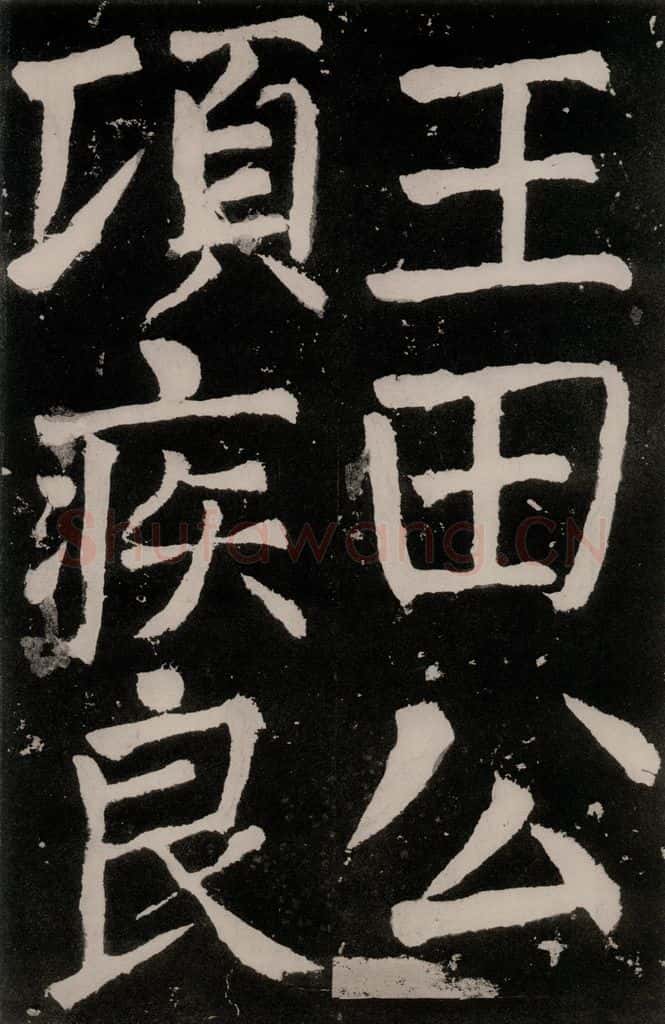 王田公
項疾良
Shufawang.CN